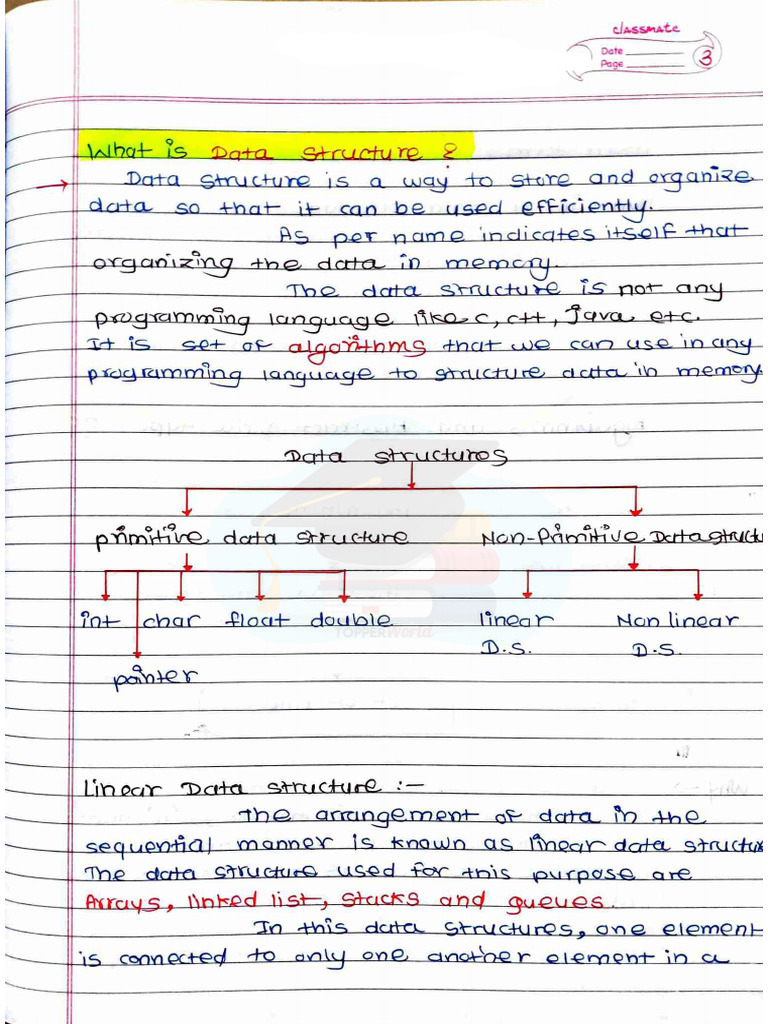 classmate
Date
Page 3
What is Data Structure ?
→ Data structure is a way to store and organize
data so that it can be used efficiently.
As per name indicates itself that
organizing the data in memory.
The data structure is not any
programming language like C, C++, Java etc.
It is set of algorithms that we can use in any
programming language to structure data in memory.
Data structures
primitive data structure Non-Primitive Data struct
int char float double linear Non linear
D.S. D.S.
pointer
TOPPERWorld
Linear Data structure :-
The arrangement of data in the
sequential manner is known as linear data structu
The data structure used for this purpose are
Arrays, linked list, stacks and queues.
In this data structures, one element
is connected to only one another element in a